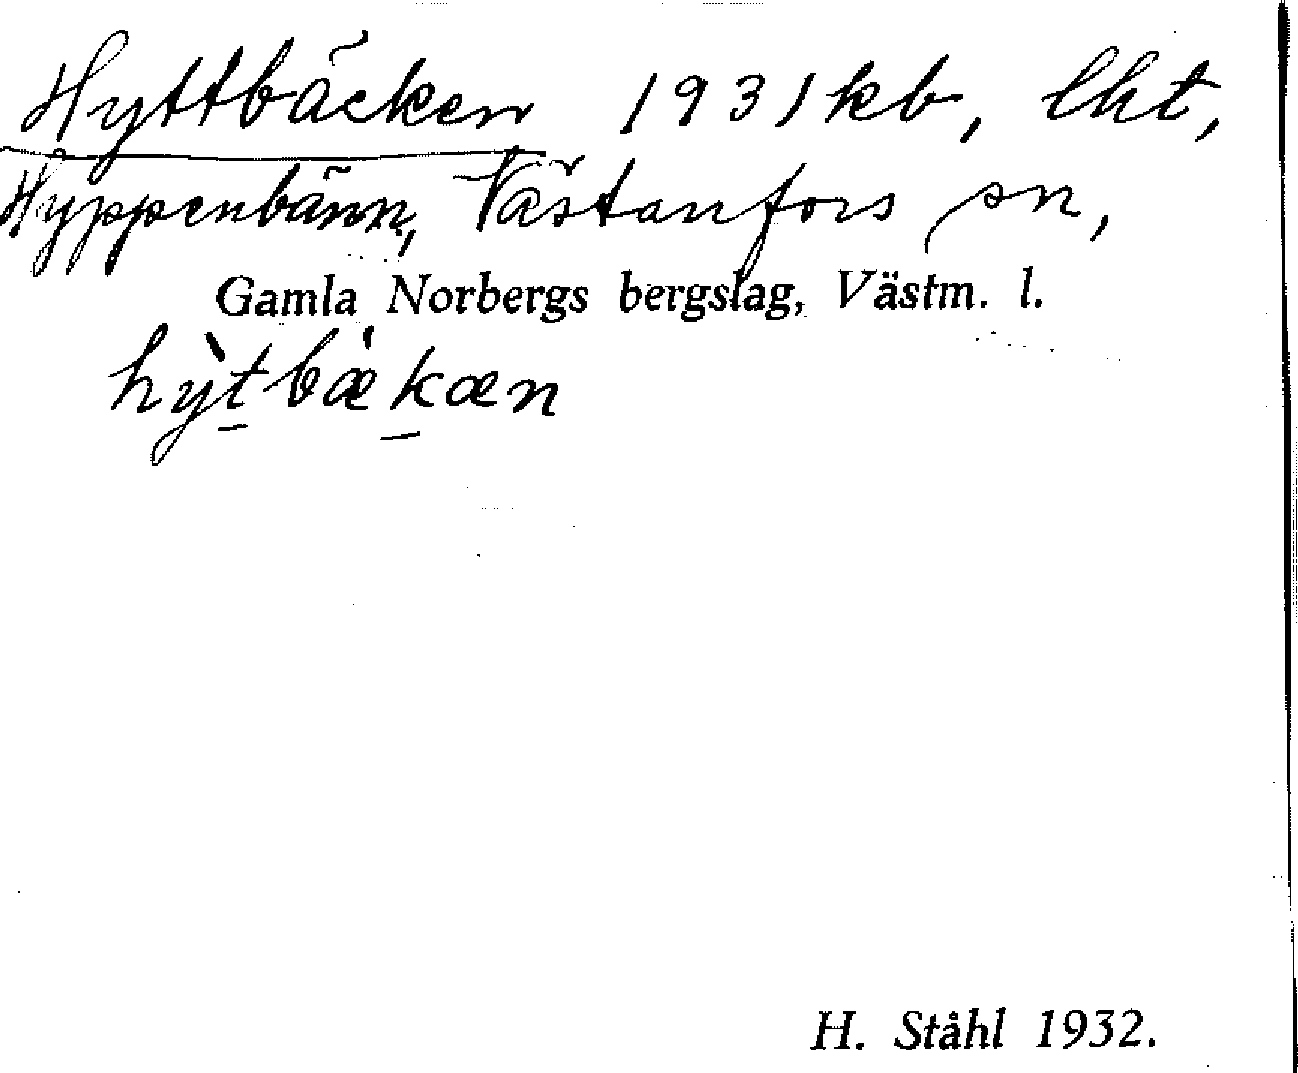 Hyttbäcken 1931 kb, lht,
Hyppenbänn, Västanfors sn,
Gamla Norbergs bergslag, Västm. l.
hỳtbækæn
H. Ståhl 1932.